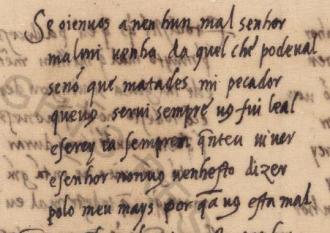 Se oienuos a nen hun mal senhor
mal mi uenho da quel che podeual
senō que matades mi pecador
queuꝯ serui sempre uꝯ fui leal
eserey ia sempren q̄nteu uiuer
esenhor nonuꝯ uenhesto dizer
polo meu mays por q̄a uꝯ esta mal